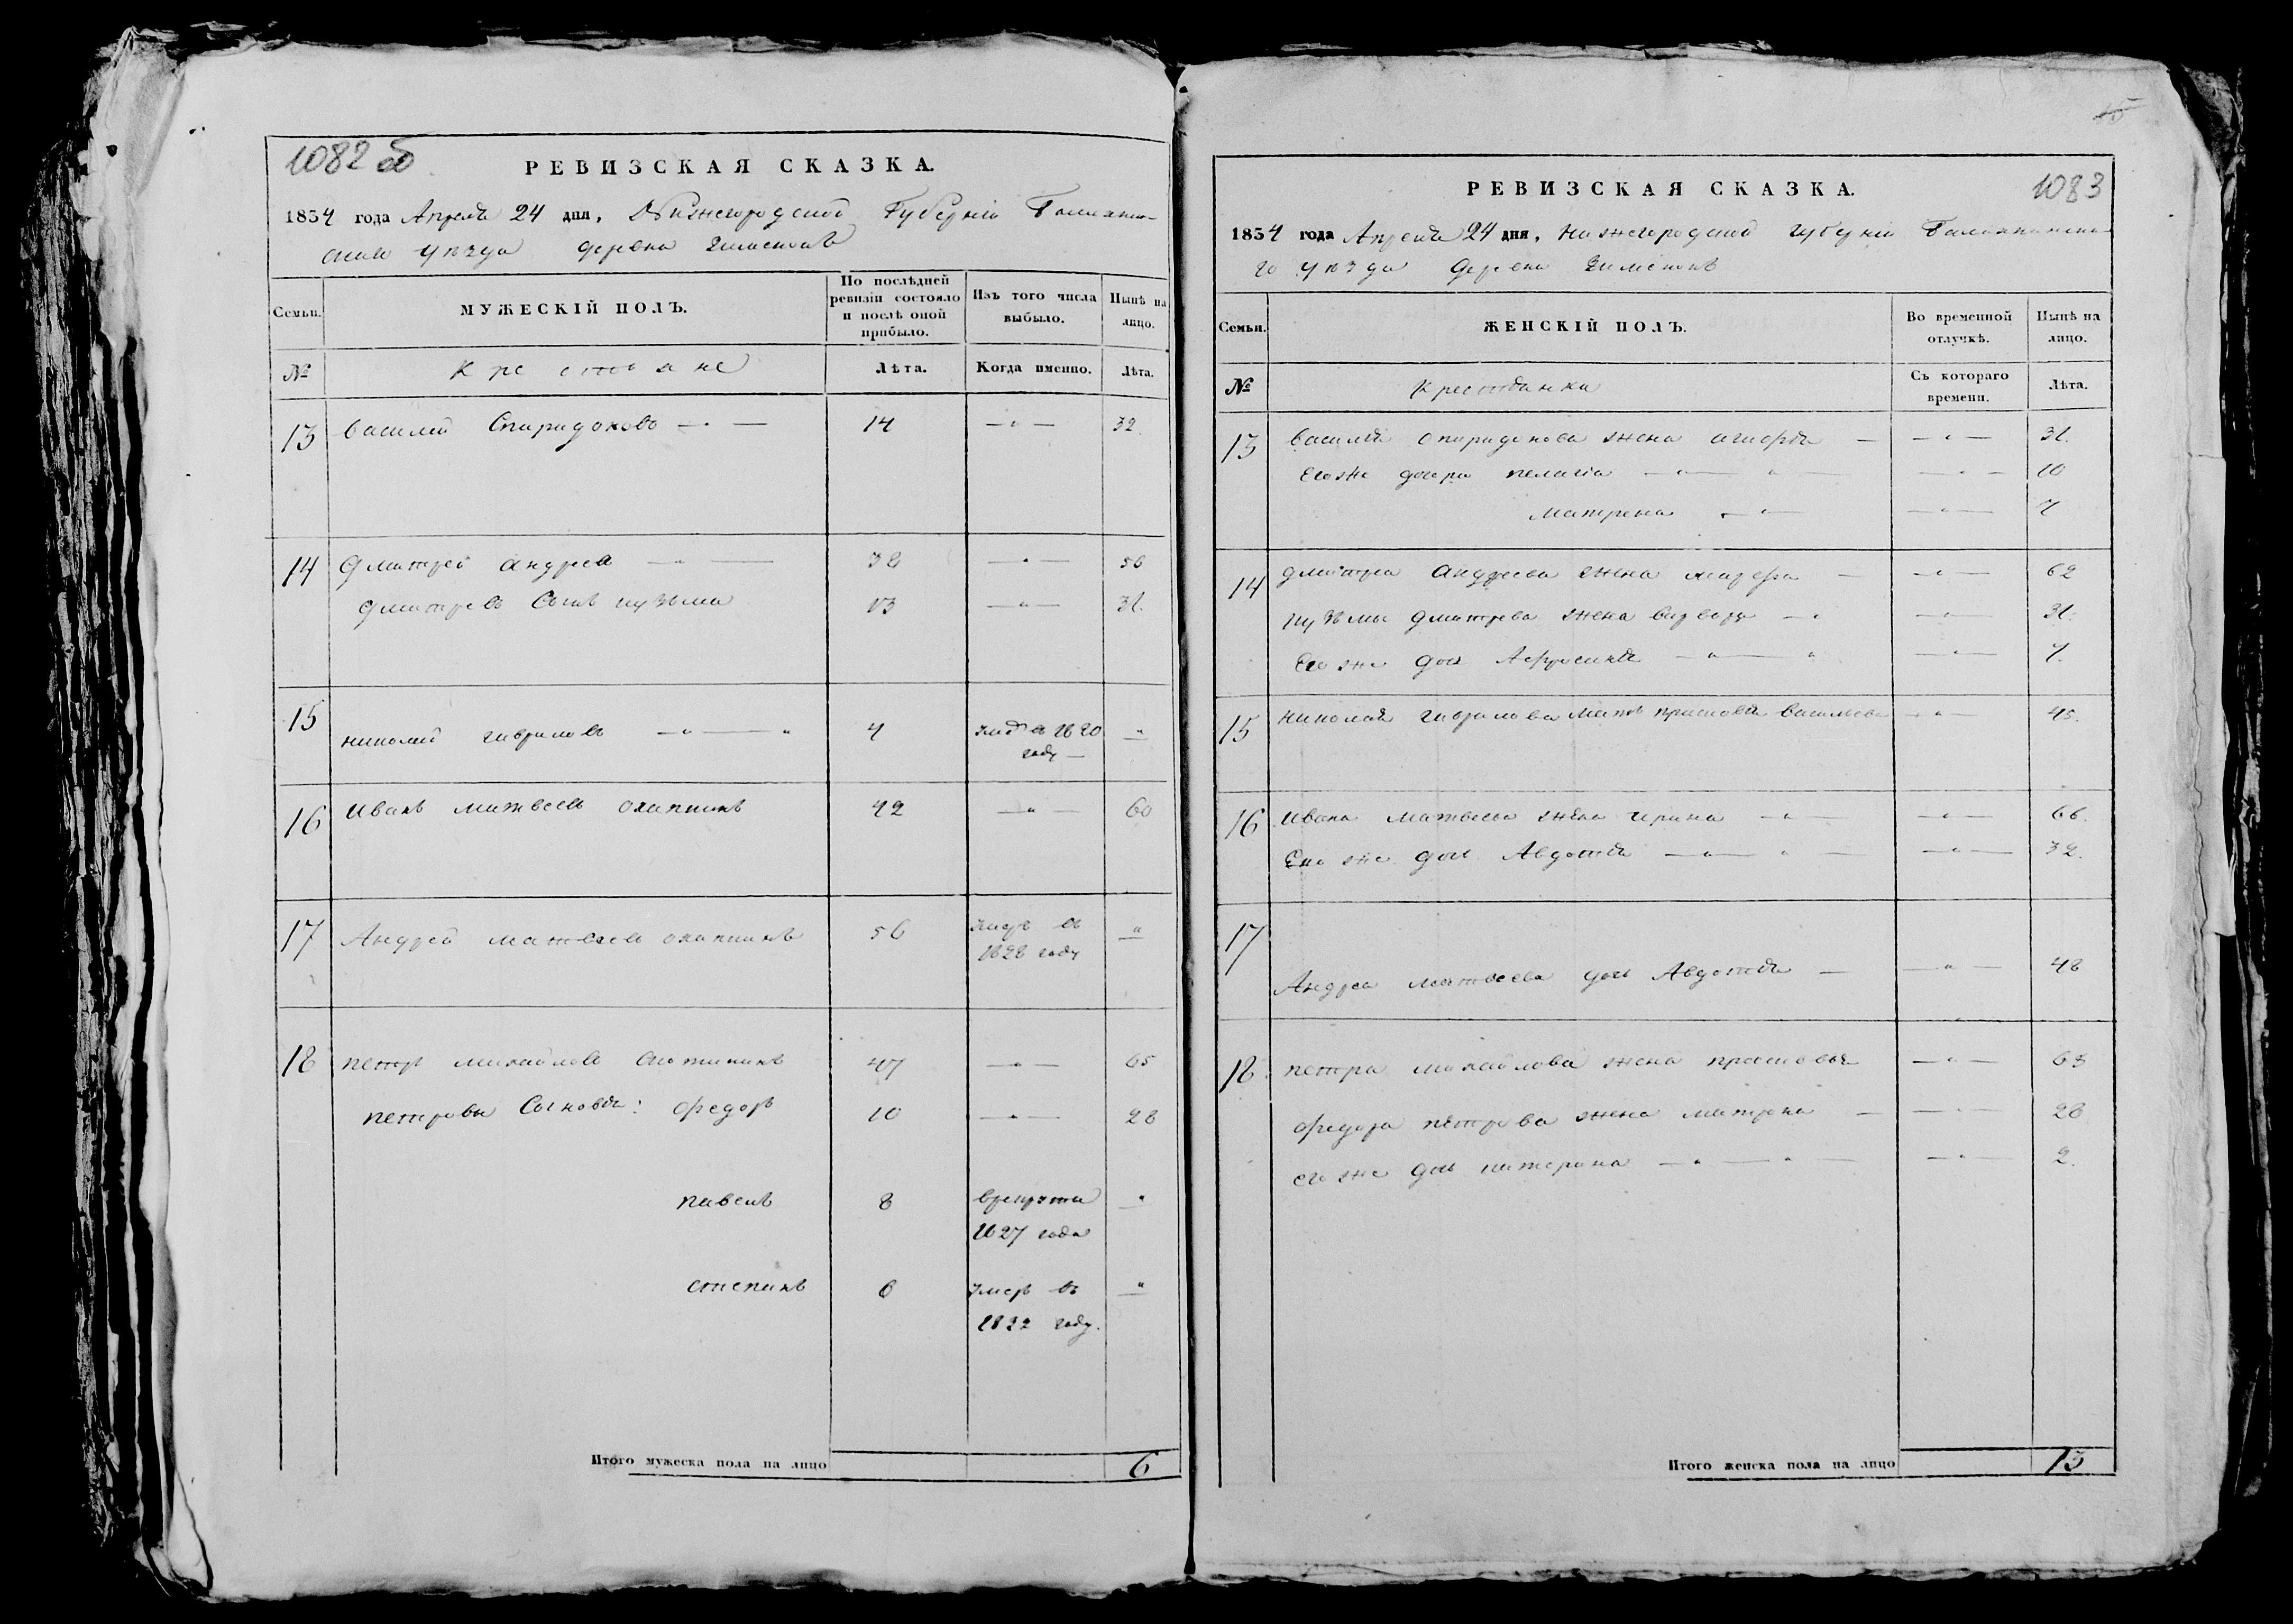 1082 об
РЕВИЗСКАЯ СКАЗКА.
1834 года Апреля 24 дня, Нижегородской Губерніи Балахнин-
скаго уѣзда деревни
Семьи.
МУЖЕСКІЙ ПОЛЪ.
По послѣдней ревизіи состояло и послѣ оной прибыло.
Изъ того числа выбыло.
Нынѣ на лицо.
№
Крестьяне
Лѣта.
Когда именно.
Лѣта.
13 василей Спиридоновъ 14 — " — 32.
14 Дмитрей андреевъ 38 — " — 56
дмитревъ Сынъ кузьма 13 — " — 31.
15 николай гавриловъ — " — " 4 умеръ въ 1820 "
году —
16 Иванъ матвеевъ охапкинъ 42 — " — 60
17 Андрей матвеевъ охапкинъ 56 умеръ въ "
1828 году
18 петръ михайловъ 47 — " — 65
петровы Сыновья: федоръ 10 — " — 28
павелъ 8 врекруты "
1827 года
степанъ 6 умеръ въ "
1822 году.
Итого мужеска пола на лицо 6
РЕВИЗСКАЯ СКАЗКА.
1083
1834 года Апреля 24 дня, нижегородской губерніи Балахнинска-
го уѣзда деревни
Семьи.
ЖЕНСКІЙ ПОЛЪ.
Во временной отлучкѣ.
Нынѣ на лицо.
№
Крестьянки
Съ котораго времени.
Лѣта.
13 василья спиридонова жена — — " — 31.
Его же дочери пелагія — " — " — — " — 10
матрена — " — — " — 7
14 дмитрея андреева жена — — " — 62
кузьмы дмитрева жена варвара — " — " — 31.
Его же дочь Афросинья — " — " — " — 7.
15 николая гаврилова мать прасковья васильева — " — 45.
16 Ивана матвеева жена ирина — " — — " — 66.
Его же дочь Авдотья — " — " — — " — 32.
17 Андрея матвеева дочь Авдотья — — " — 48
18 петра михайлова жена прасковья — " — 63
федора петрова жена матрона — — " — 28
его же дочь катерина — " — " — — " — 2.
Итого женска пола на лицо 13